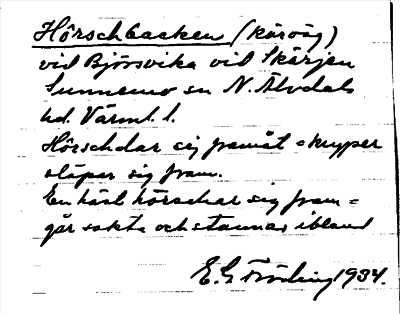 Hörschbacken (körväg)
vid Björsvika vid Skärjen
Sunnemo sn N. Älvdals
hd. Värml. l.
Hörschdar sig framåt = kryper
släpar sig fram.
En häst hörschar sig fram =
går sakta och stannar ibland
E. G. Fröding 1934.